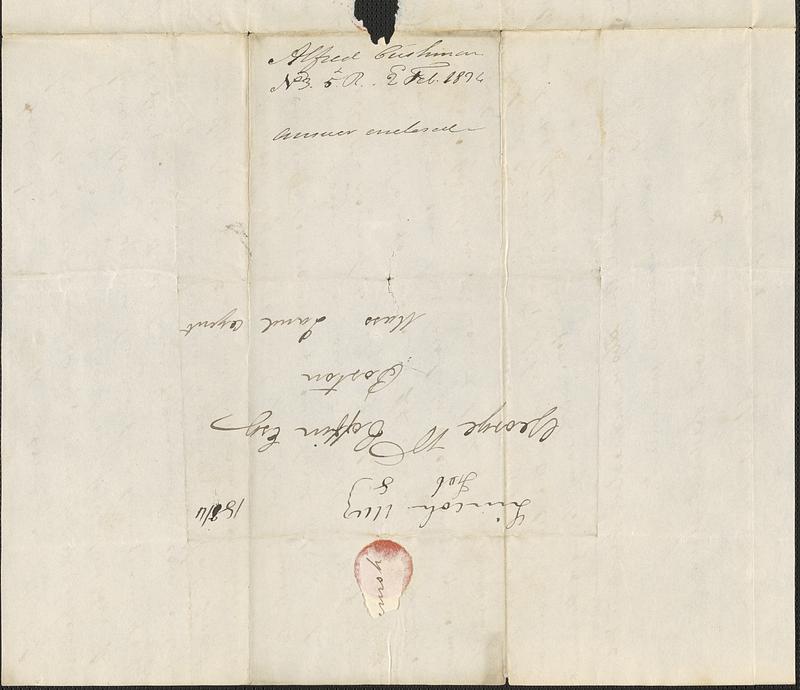 Alfred Cushman
No 3. 5. R. 2 Feb. 1874
answer enclosed
Lincoln Me
Feb 8
George W Coffin Esq
Boston
Mass Land agent
your